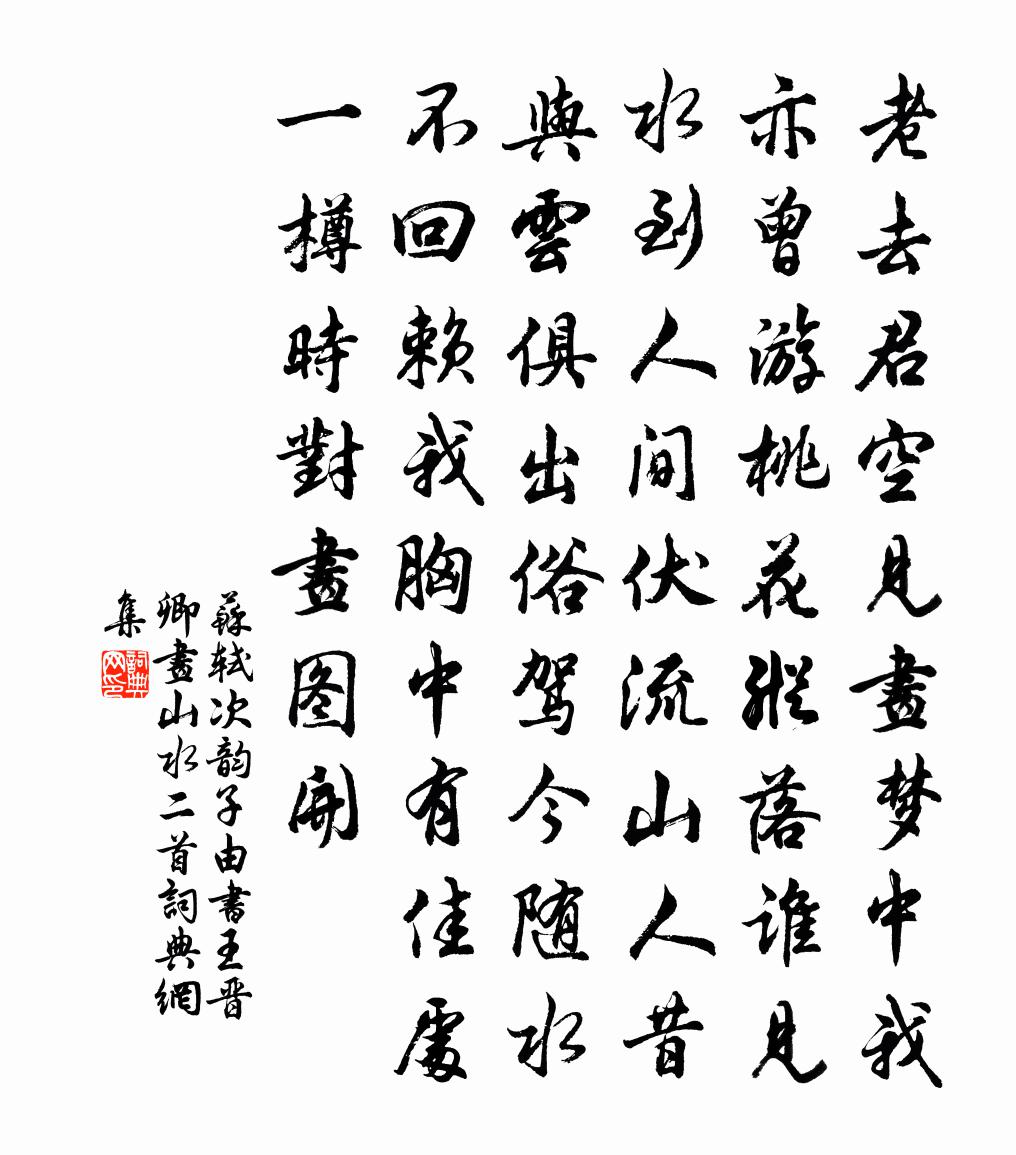 老去君空見畫梦中我
亦曾游桃花縱落谁見
水到人间伏流山人昔
與雲俱出俗駕今随水
不回赖我胸中有佳處
一樽時對畫图開
蘇轼次韵子由書王晋
卿畫山水二首詞典網
集
詞典网印